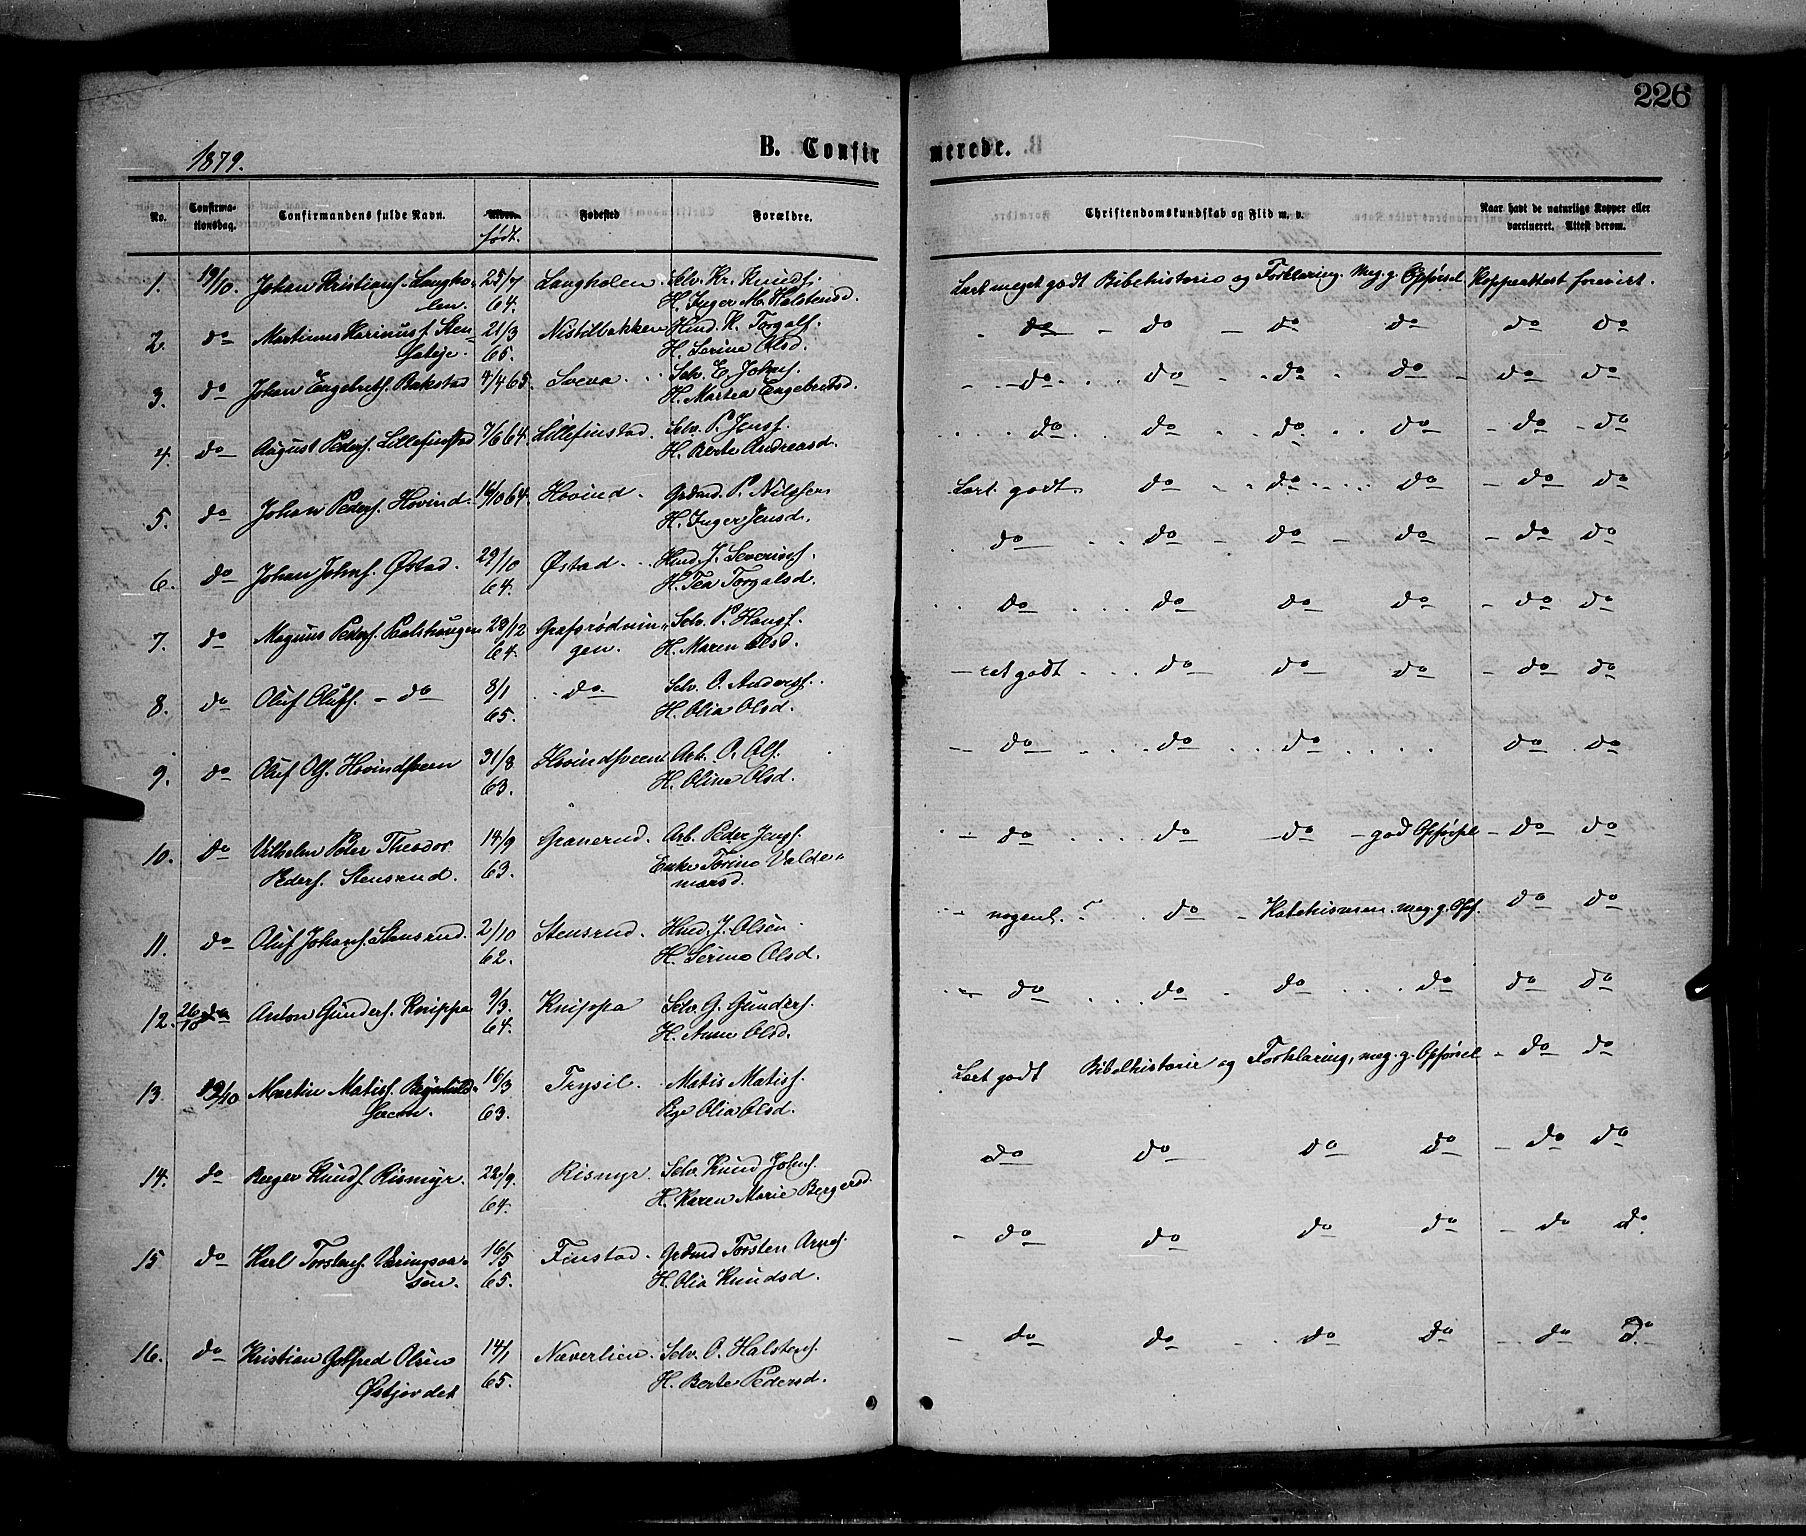 226
1879.
B. Confirmerede.
No. Confirmationsdag. Confirmandens fulde Navn. Alder. født. Fødested Forældre. Christendomskundskab og Flid m. v. Naar havt de naturlige Kopper eller vaccineret. Attest derom.
1. 19/10. Johan Kristians. Langholen. 25/7 64. Langholen Selv. Kr. Knuds. H. Inger M. Halstensd. Lært meget godt Bibehistorie og Forklaring. Meg. g. Opførsel Koppeattest forevist.
2. do Martinus Karinus f. Sten Sateje. 21/3 65. Nistilbakken Huusd. K. Torgals. H. Serine Olsd. do do do do do do
3. do Johan Engebrets. Bakstad 4/4 65. Sveva Selv. E. Johns. H. Martea Engebretsd. do do do do do do
4. do August Peders. Lillefinstad 7/6 64. Lillefinstad. Selv. P. Jens. H. Berte Andreasd. do do do do do do
5. do Johan Peders. Hovind. 14/10 64. Hovind. Grdmd. P. Nilssen H. Inger Jensd. Lært godt. do do do do do
6. do Johan Johns. Østad. 29/10 64. Østad. Husd. J. Severins. H. Tea Torgalsd. do do do do do do
7. do Magnus Peders. Paalshaugen 28/12 64. Grafsrødvingen. Selv. P. Hans. H. Maren Olsd. do do do do do do
8. do Oluf Olufs. - do 8/1 65. do Selv. O. Anders. H. Olia Olsd. - ret godt do do do do do
9. do Oluf Ols. Hovindsveen 31/8 63. Hovindsveen Arb. O. Ols. H. Oline Olsd. do do do do do
10. do Vilhelm Peder Theodor Peders. Stensrud. 14/9 63. Granerud. Arb. Peder Jens. Enke Torine Valdemarsd. do do do - god Opførsel - do do
11. do Oluf Johans. Stensrud. 2/10 62. Stensrud. Husd. J. Olsen H. Serine Olsd. nogenl. do - Katekismen. meg. g. Opf. do do
12. 26/10 do Anton Gunders. Knippa 9/3. 64. Knippa Selv. G. Gunders. H. Anne Olsd. do do do do do do
13. 19/10 Martin Matiss. 16/3 63. Trysil. Matis Matiss. Pige Olia Olsd. Lært godt Bibelhistorie og Forklaring, meg. g. Opførsel - do do
14. do Berger Knuds. Rismyr. 22/9. 64. Rismyr. Selv. Knud Johns. H. Karen Marie Bergersd. do do do do do do
15 do Karl Torstens. Væringsaasen. 16/5 65. Finstad. Grdmd Torsten Arnes. H. Olia Knudsd. do do do do do do.
16. do Kristian Gotfred Olsen Østjordet 14/1 65. Næverlien. Selv. O. Halstens. H. Berte Pedersd. do do do do do do.